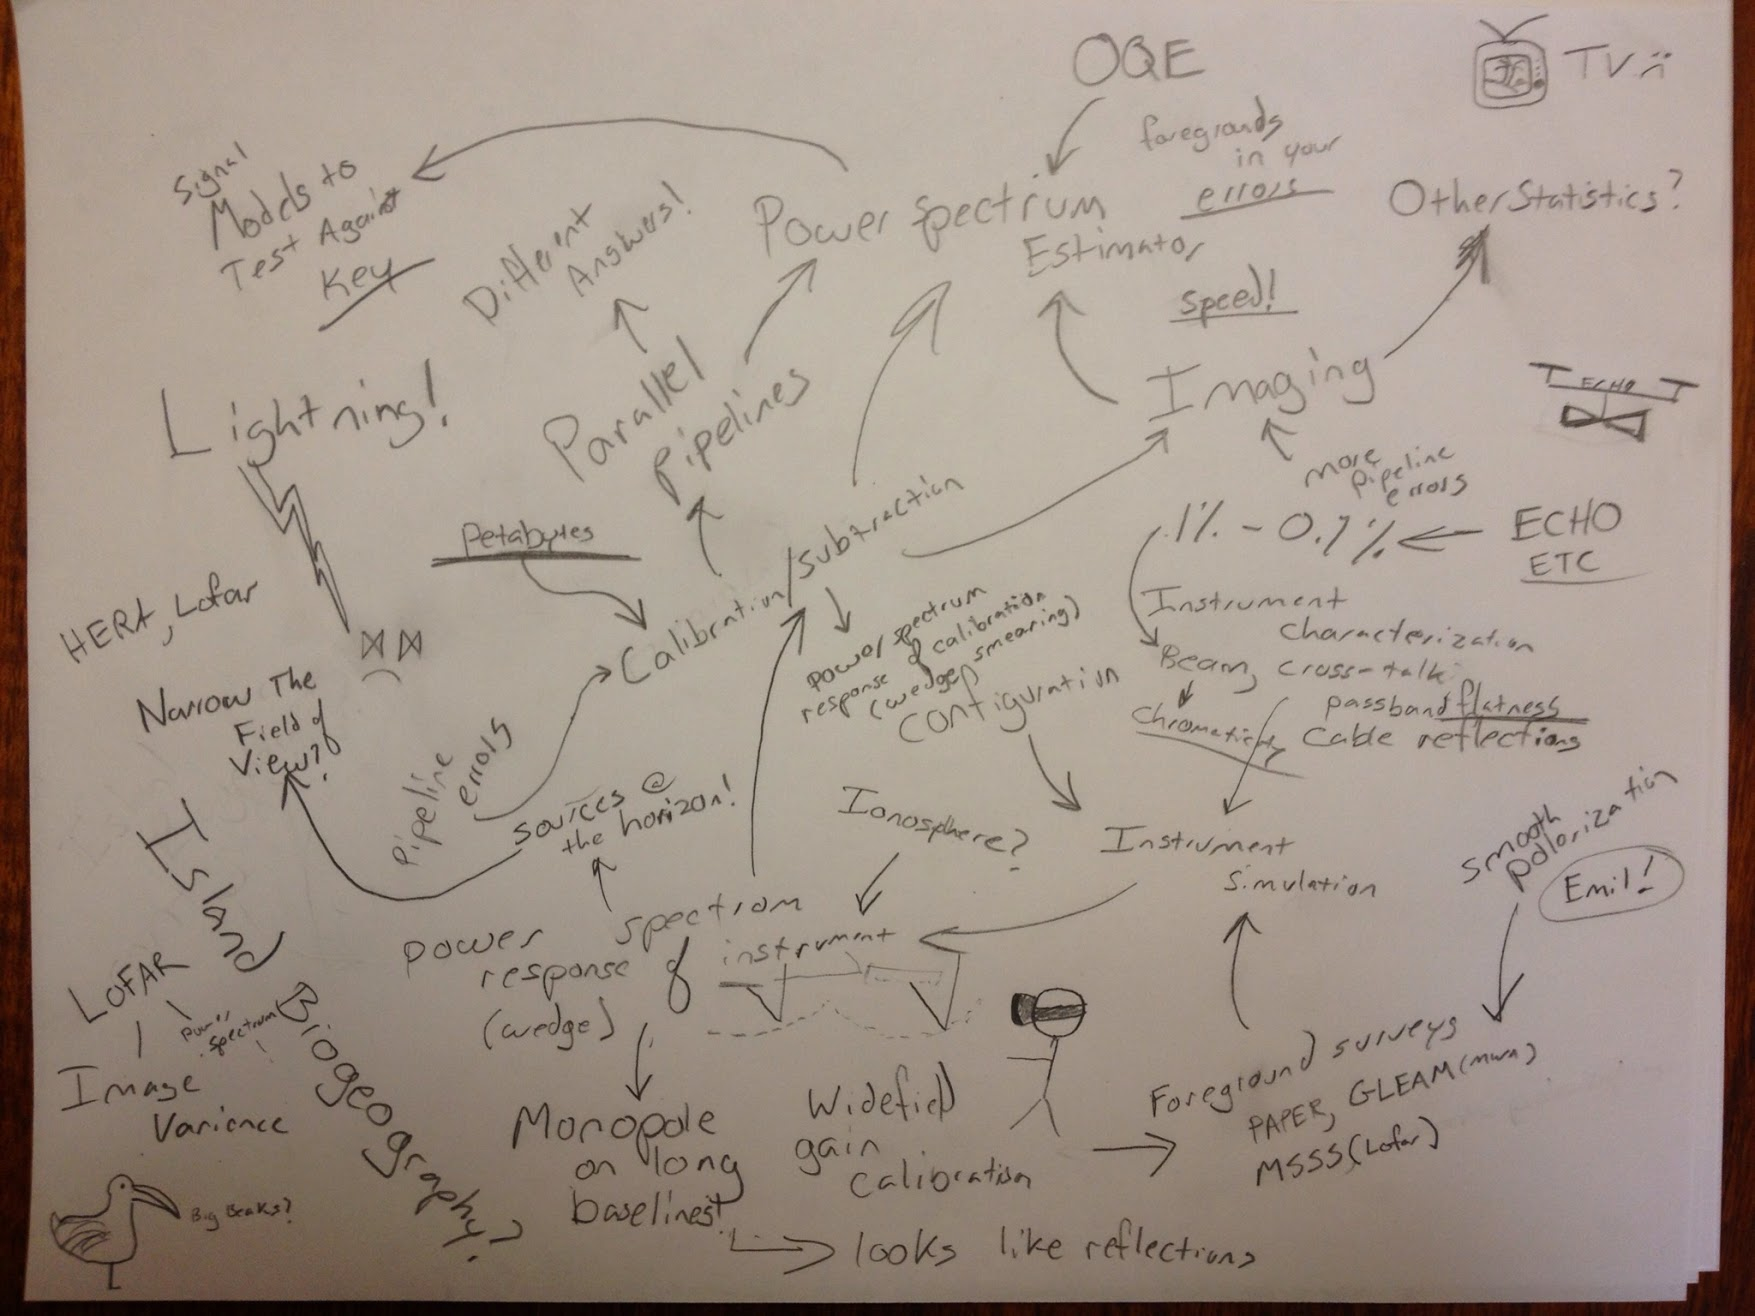 OQE
TV :(
foregrounds
in your
errors
Signal
Models to
Test Against
Key
Different
Answers!
Power Spectrum
Estimator
Other Statistics?
speed!
Lightning!
Parallel
Pipelines
Imaging
ECHO
more
pipeline
errors
Petabytes
Calibration/Subtraction
.1% - 0.1%
ECHO
ETC
HERA, Lofar
power spectrum
response of calibration
(wedge smearing)
Configuration
Instrument
characterization
Beam, cross-talk
passband flatness
Chromaticity
cable reflections
Narrow The
Field of
View?
Pipeline
errors
sources @
the horizon!
Ionosphere?
Instrument
Simulation
smooth
polorization
Emil!
Island Biogeography?
power spectrum
response of instrument
(wedge)
LOFAR
Power
spectrum
Image
Varience
Monopole
on long
baselines!
Widefield
gain
calibration
Foreground surveys
PAPER, GLEAM (mwa)
MSSS (Lofar)
Big Beaks?
looks like reflections